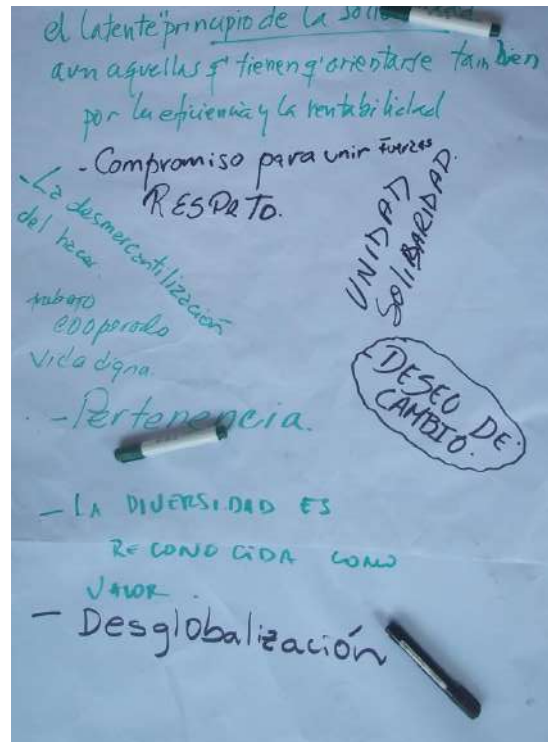 el latente "principio de la
aun aquellas q' tienen q' orientarse también
por la eficiencia y la rentabilidad
- Compromiso para unir Fuerzas
RESPETO.
UNIDAD
SOLIDARIDAD.
- La desmercantilización
del hacer
trabajo
cooperado
Vida digna.
DESEO DE
CAMBIO.
- Pertenencia.
- LA DIVERSIDAD ES
RECONOCIDA COMO
VALOR
- Desglobalización